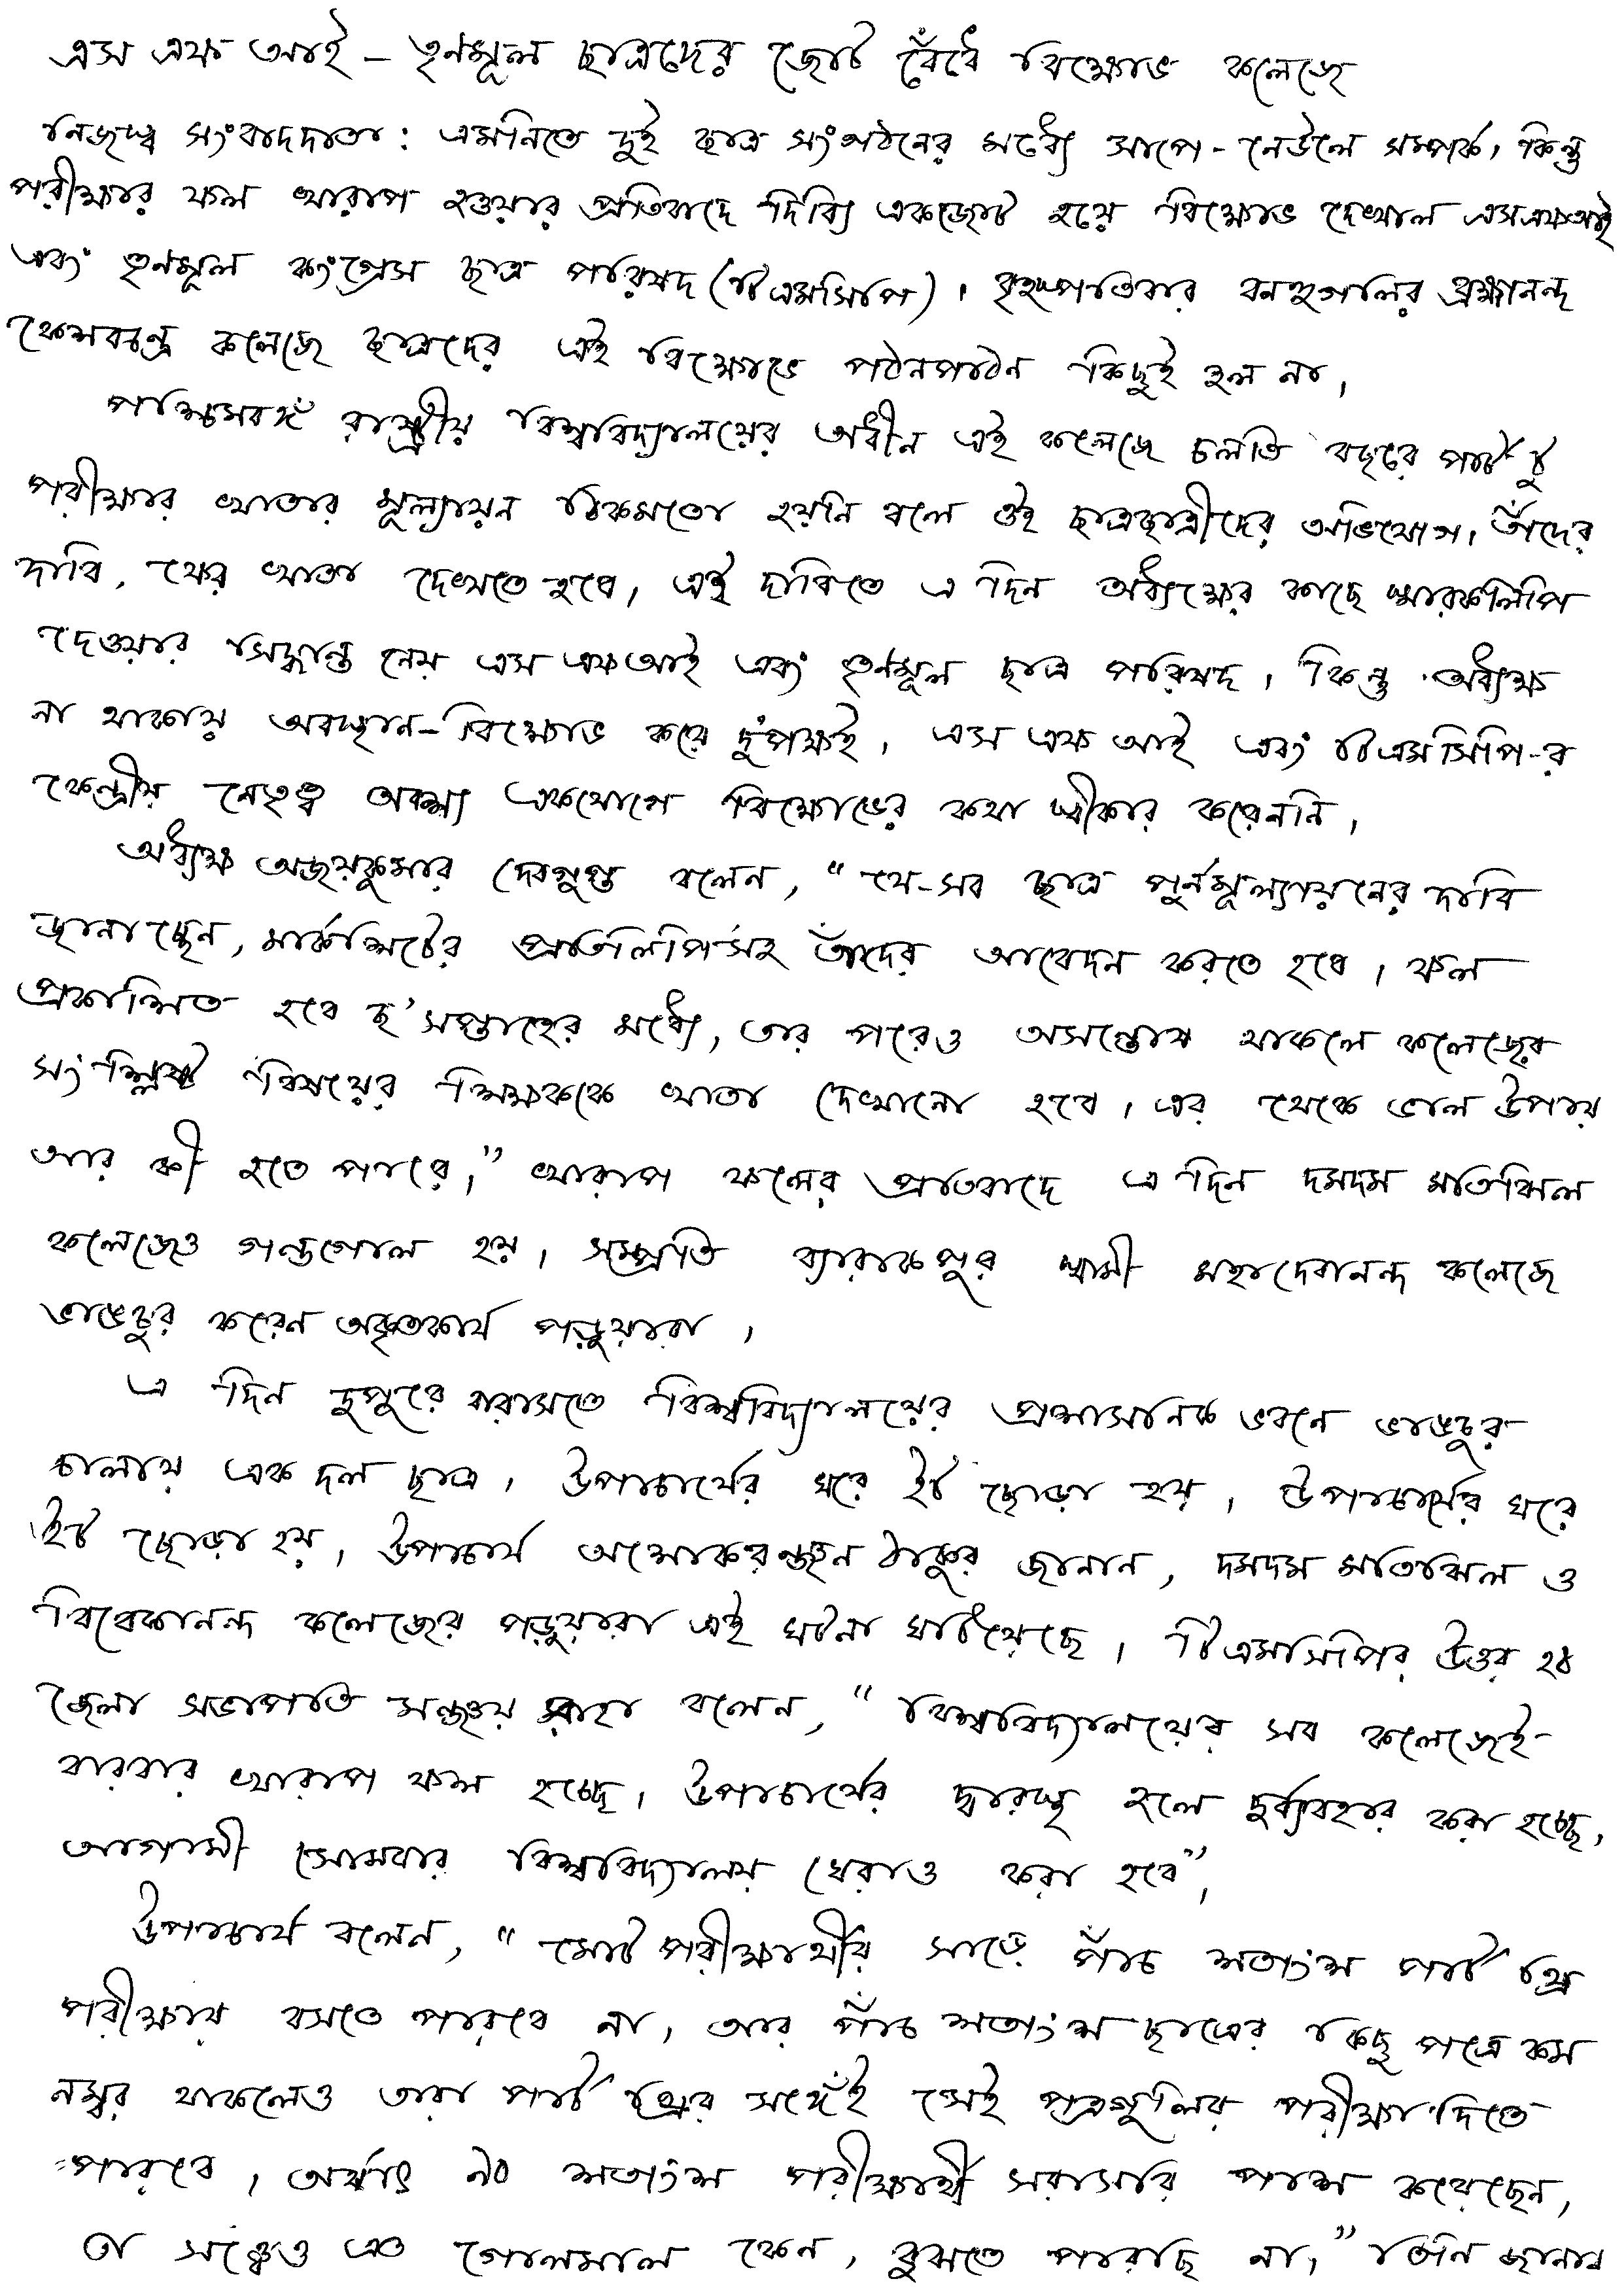 এস এফ আই - তৃণমূল ছাত্রদের জোট বেঁধে বিক্ষোভ কলেজে
নিজস্ব সংবাদদাতা: এমনিতে দুই ছাত্র সংগঠনের মধ্যে সাপে-নেউলে সম্পর্ক। কিন্তু
পরীক্ষার ফল খারাপ হওয়ার প্রতিবাদে দিব্যি একজোট হয়ে বিক্ষোভ দেখাল এসএফআই
এবং তৃণমূল কংগ্রেস ছাত্র পরিষদ (টিএমসিপি)। বৃহস্পতিবার বনহুগলির ব্রহ্মানন্দ
কেশবচন্দ্র কলেজে ছাত্রদের এই বিক্ষোভে পঠনপাঠন কিছুই হল না।
পশ্চিমবঙ্গ রাষ্ট্রীয় বিশ্ববিদ্যালয়ের অধীন এই কলেজে চলতি বছরে পার্ট টু
পরীক্ষার খাতার মূল্যায়ন ঠিকমতো হয়নি বলে ওই ছাত্রছাত্রীদের অভিযোগ। তাঁদের
দাবি, ফের খাতা দেখতে হবে। এই দাবিতে এ দিন অধ্যক্ষের কাছে স্মারকলিপি
দেওয়ার সিদ্ধান্ত নেয় এস এফ আই এবং তৃণমূল ছাত্র পরিষদ। কিন্তু অধ্যক্ষ
না থাকায় অবস্থান-বিক্ষোভ করে দু'পক্ষই। এস এফ আই এবং টিএমসিপি-র
কেন্দ্রীয় নেতৃত্ব অবশ্য একযোগে বিক্ষোভের কথা স্বীকার করেননি।
অধ্যক্ষ অজয়কুমার দেবগুপ্ত বলেন, “যে-সব ছাত্র পুর্নমূল্যায়নের দাবি
জানাচ্ছেন, মার্কশিটের প্রতিলিপিসহ তাঁদের আবেদন করতে হবে। ফল
প্রকাশিত হবে ছ'সপ্তাহের মধ্যে, তার পরেও অসন্তোষ থাকলে কলেজের
সংশ্লিষ্ট বিষয়ের শিক্ষককে খাতা দেখানো হবে। এর থেকে ভাল উপায়
আর কী হতে পারে।” খারাপ ফলের প্রতিবাদে এ দিন দমদম মতিঝিল
কলেজেও গন্ডগোল হয়। সম্প্রতি ব্যারাকপুর স্বামী মহাদেবানন্দ কলেজে
ভাঙচুর করেন অকৃতকার্য পড়ুয়ারা।
এ দিন দুপুরে বারাসতে বিশ্ববিদ্যালয়ের প্রশাসনিক ভবনে ভাঙচুর
চালায় এক দল ছাত্র। উপাচার্যের ঘরে ইট ছোড়া হয়। উপাচার্যের ঘরে
ইট ছোড়া হয়। উপাচার্য অশোকরন্জন ঠাকুর জানান, দমদম মতিঝিল ও
বিবেকানন্দ কলেজের পড়ুয়ারা এই ঘটনা ঘটিয়েছে। টিএমসিপির উত্তর ২৪
জেলা সভাপতি সন্জয় রাহা বলেন, “বিশ্ববিদ্যালয়ের সব কলেজেই
বারবার খারাপ ফল হচ্ছে। উপাচার্যের দ্বারস্থ হলে দুর্ব্যবহার করা হচ্ছে,
আগামী সোমবার বিশ্ববিদ্যালয় ঘেরাও করা হবে”।
উপাচার্য বলেন, “মোট পরীক্ষার্থীর সাড়ে পাঁচ শতাংশ পার্ট থ্রি
পরীক্ষায় বসতে পারবে না। আর পাঁচ শতাংশ ছাত্রের কিছু পত্রে কম
নম্বর থাকলেও তারা পার্ট থ্রির সঙ্গেই সেই পত্রগুলির পরীক্ষা দিতে
পারবে। অর্থাৎ ৯০ শতাংশ পরীক্ষার্থী সরাসরি পাশ করেছেন,
তা সত্ত্বেও এত গোলমাল কেন, বুঝতে পারছি না।” তিনি জানান